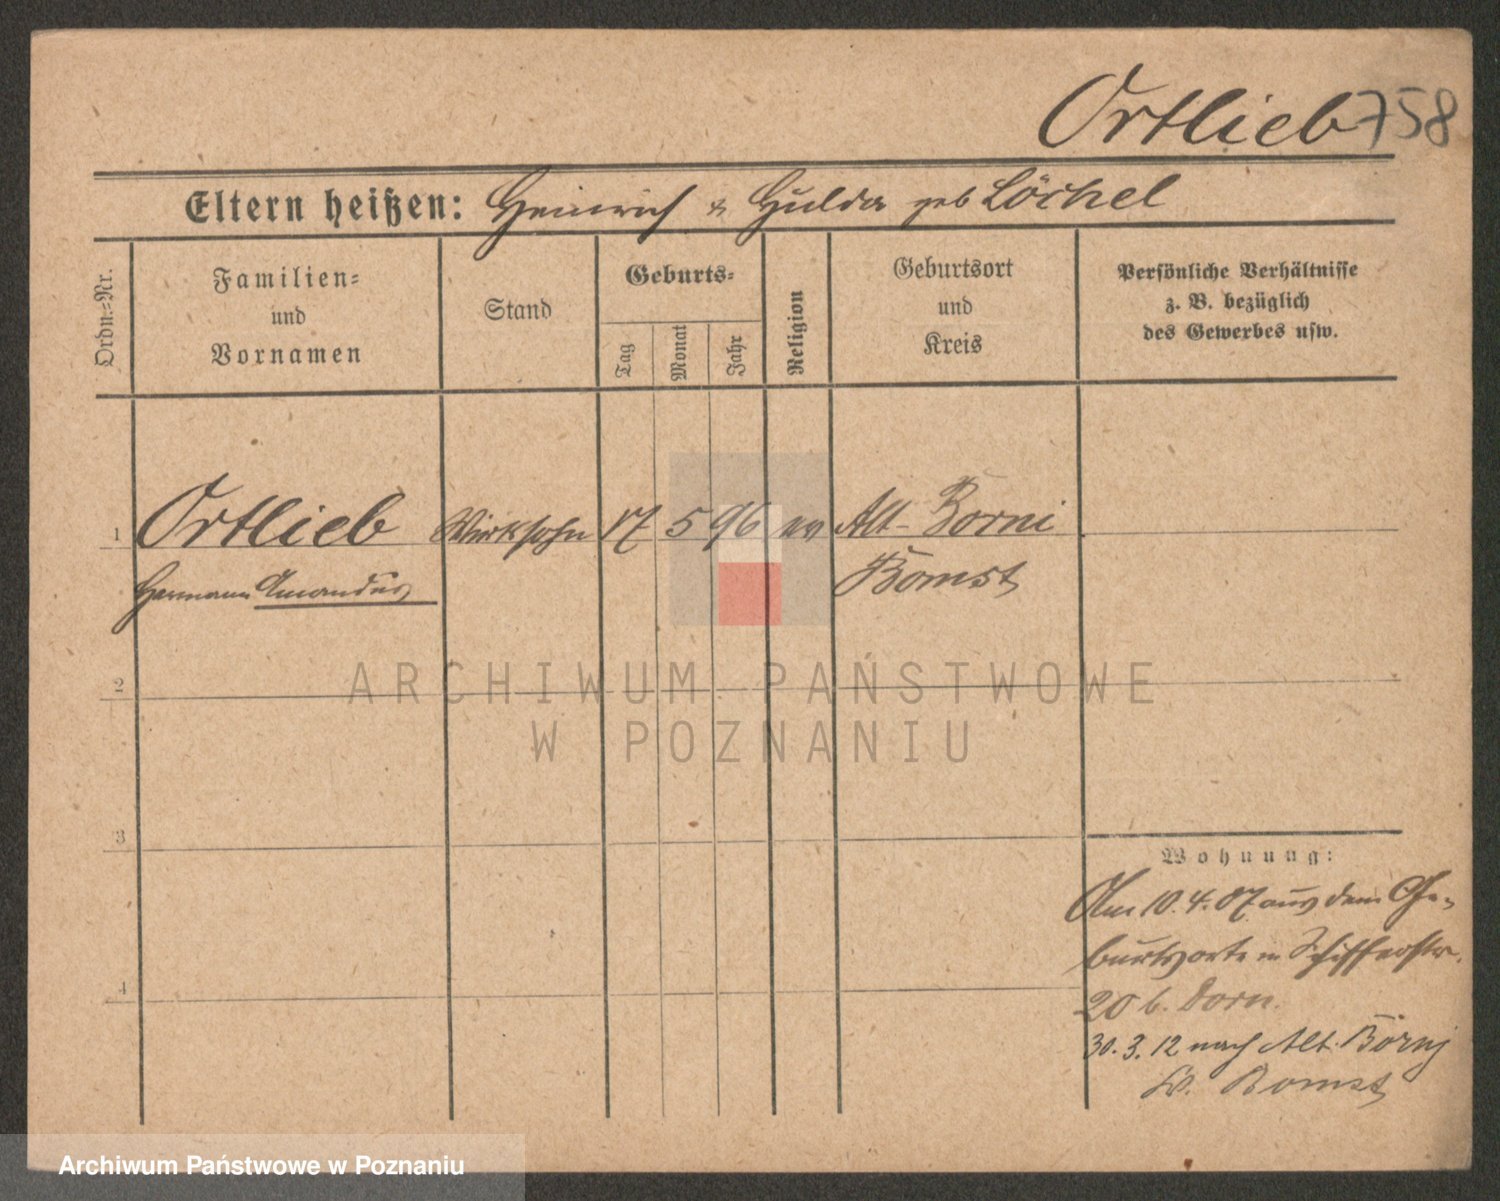 Ortlieb 758
Eltern heißen: Heinrich & Hulda geb Löchel
Ordn.-Nr.
Familien-
und
Vornamen
Stand
Geburts-
Tag
Monat
Jahr
Religion
Geburtsort
und
Kreis
Persönliche Verhältnisse
z. B. bezüglich
des Gewerbes usw.
1 Ortlieb Wirtssohn 17 5 96 ev Alt-Borui
Hermann Amandus Bomst
2
ARCHIWUM PAŃSTWOWE
W POZNANIU
3
Wohnung:
Am 10.4.07 aus dem Ge-
burtsorte n Schifferstr.
20 b. Dorn.
4
30.3.12 nach Alt. Boruj
Kr. Bomst
Archiwum Państwowe w Poznaniu